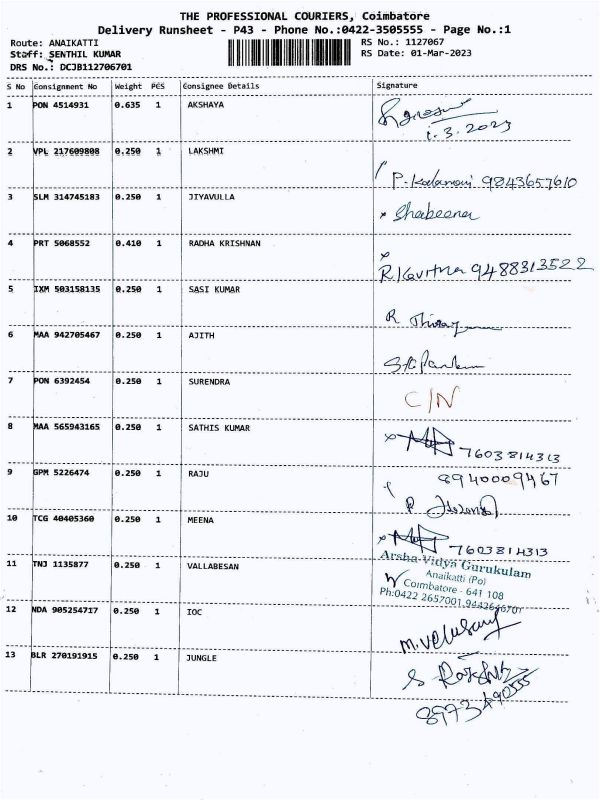 THE PROFESSIONAL COURIERS, Coimbatore
Delivery Runsheet - P43 - Phone No.:0422-3505555 - Page No.:1
Route: ANAIKATTI
RS No.: 1127067
Staff: SENTHIL KUMAR
RS Date: 01-Mar-2023
DRS No.: DCJB112706701
S No Consignment No Weight PCS Consignee Details Signature
1 PON 4514931 0.635 1 AKSHAYA
1.3.2023
2 VPL 217609808 0.250 1 LAKSHMI
P. 9843657610
3 SLM 314745183 0.250 1 JIYAVULLA
x Shabeena
4 PRT 5068552 0.410 1 RADHA KRISHNAN
x
R. Kavitha 9488313522
5 IXM 503158135 0.250 1 SASI KUMAR
R
6 MAA 942705467 0.250 1 AJITH
7 PON 6392454 0.250 1 SURENDRA
C/N
8 MAA 565943165 0.250 1 SATHIS KUMAR
x 7603814313
9 GPM 5226474 0.250 1 RAJU
8940009467
10 TCG 40405360 0.250 1 MEENA
x 7603814313
11 TNJ 1135877 0.250 1 VALLABESAN
Arsha Vidya Gurukulam
Anaikatti (Po)
Coimbatore - 641 108
Ph:0422 2657001,9442646701
12 NDA 905254717 0.250 1 IOC
M. Velusamy
13 BLR 270191915 0.250 1 JUNGLE
S
8973490555